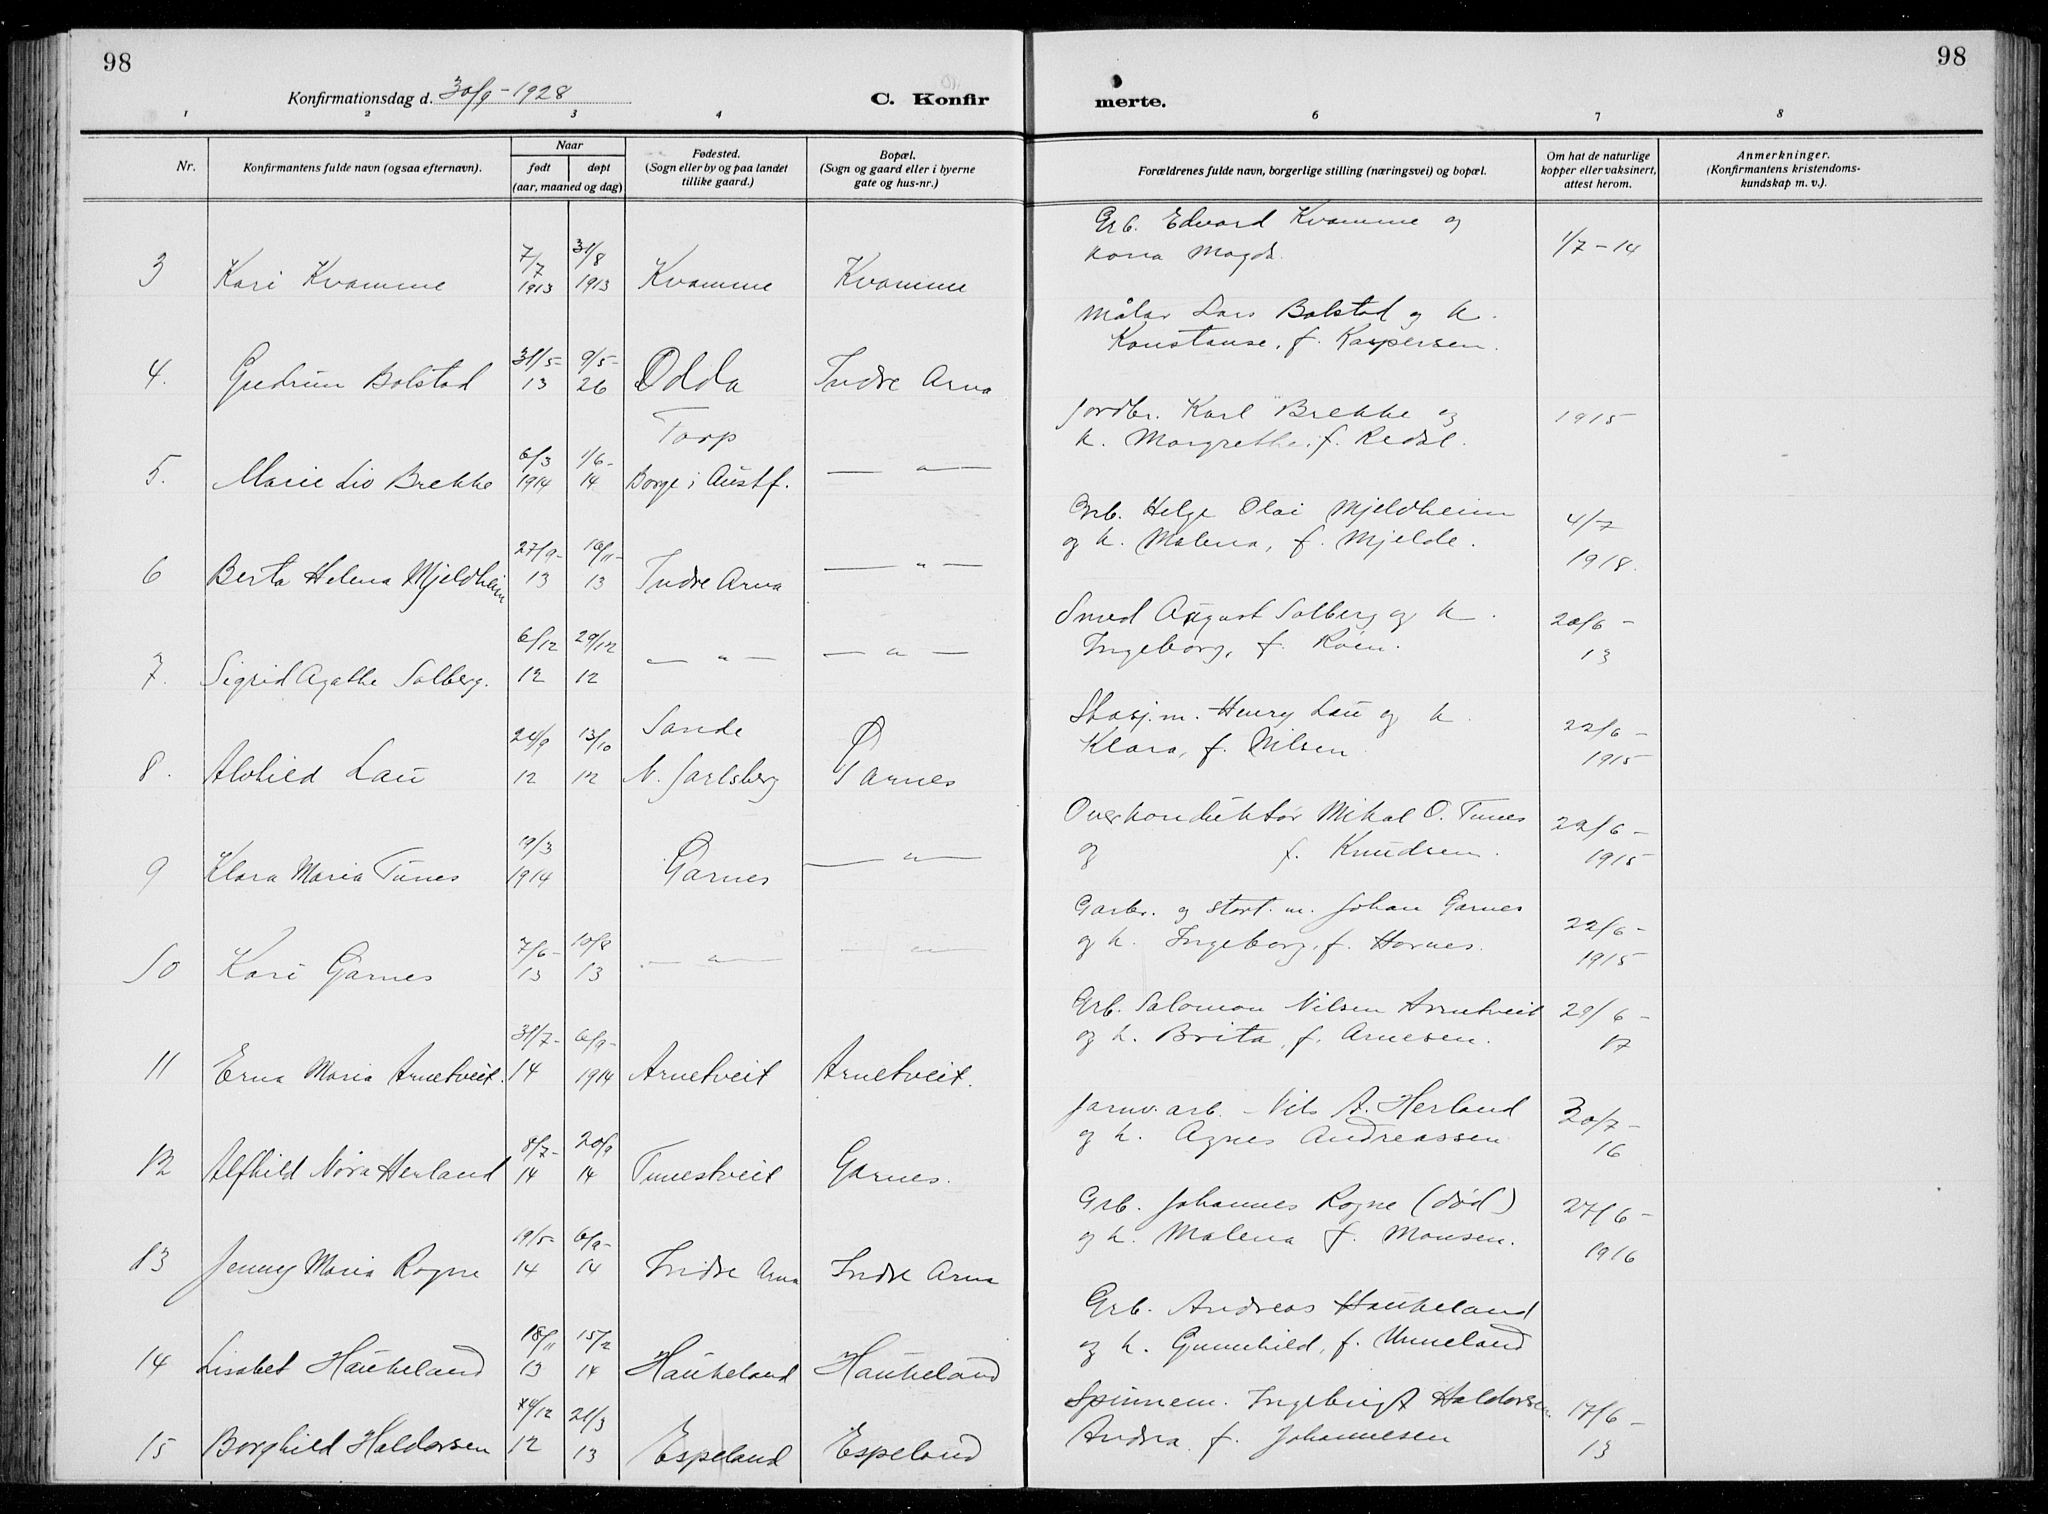 98
98
Konfirmationsdag d. 30/9-1928
C. Konfir
merte.
1 2 3 4 6 7 8
Nr.
Konfirmantens fulde navn (ogsaa efternavn).
Naar
født døpt
(aar, maaned og dag)
Fødested.
(Sogn eller by og paa landet
tillike gaard.)
Bopæl.
(Sogn og gaard eller i byerne
gate og hus-nr.)
Forældrenes fulde navn, borgerlige stilling (næringsvei) og bopæl.
Om hat de naturlige
kopper eller vaksinert,
attest herom.
Anmerkninger.
(Konfirmantens kristendoms-
kundskap m. v.).
Grb. Edvard Kvamme og
7/7 31/8 kona Magda. 1/7-14
3 Kari Kvamme 1913 1913 Kvamme Kvamme
Målar Lars Bolstad og k.
31/5- 9/5- Konstanse, f. Kaspersen.
4. Gudrun Bolstad 13 26 Odda Indre Arna
Torp Jordbr. Karl Brekke og 1915
6/3 1/6- k. Margrethe, f. Redal.
5. Marie Liv Brekke 1914 14 Borge i Austf. — " —
Grb. Helge Olai Mjeldheim 4/7
27/9- 16/11- og k. Malena, f. Mjelde. 1918.
6 Berta Helena Mjeldheim 13 13 Indre Arna — " —
Smed August Solberg og k. 20/6-
6/12 29/12 Ingeborg, f. Røen. 13
7. Sigrid Agathe Solberg. 12 12 — " — — " —
Sande Stasj.m. Henry Lau og k. 22/6-
24/9 13/10 Klara, f. Nilsen. 1915
8. Alvhild Lau 12 12 N. Jarlsberg Garnes
Overkonduktør Mikal O. Tunes 22/6-
19/3 og f. Knudsen. 1915
9 Klara Maria Tunes 1914 Garnes — " —
Garbr. og stort. m. Johan Garnes 22/6-
7/6- 10/8 og k. Ingeborg, f. Hornes. 1915
10 Kari Garnes 13 13 — " — — " —
Grb. Salomon Nilsen Arnetveit 29/6-
31/7- 6/9- og k. Brita, f. Arnesen. 17
11 Erna Maria Arnetveit. 14 1914 Arnetveit Arnetveit.
Jarnv. arb. Nils A. Herland 20/7-
8/7- 20/9 og k. Agnes Andreassen 16
12 Alfhild Nora Herland 14 14 Tunestveit Garnes.
Grb. Johannes Rogne (død) 27/6-
19/5- 6/9- og k. Malena f. Monsen. 1916
13 Jenny Maria Rogne 14 14 Indre Arna Indre Arna
Grb. Andreas Haukeland
18/11 15/2 og k. Gunnhild, f. Unneland
14 Lisabet Haukeland 13 14 Haukeland Haukeland
Spinnem. Ingebrigt Haldorsen 17/6-
21/3 Andrea f. Johannesen 13
15 Borghild Haldorsen 12 13 Espeland Espeland